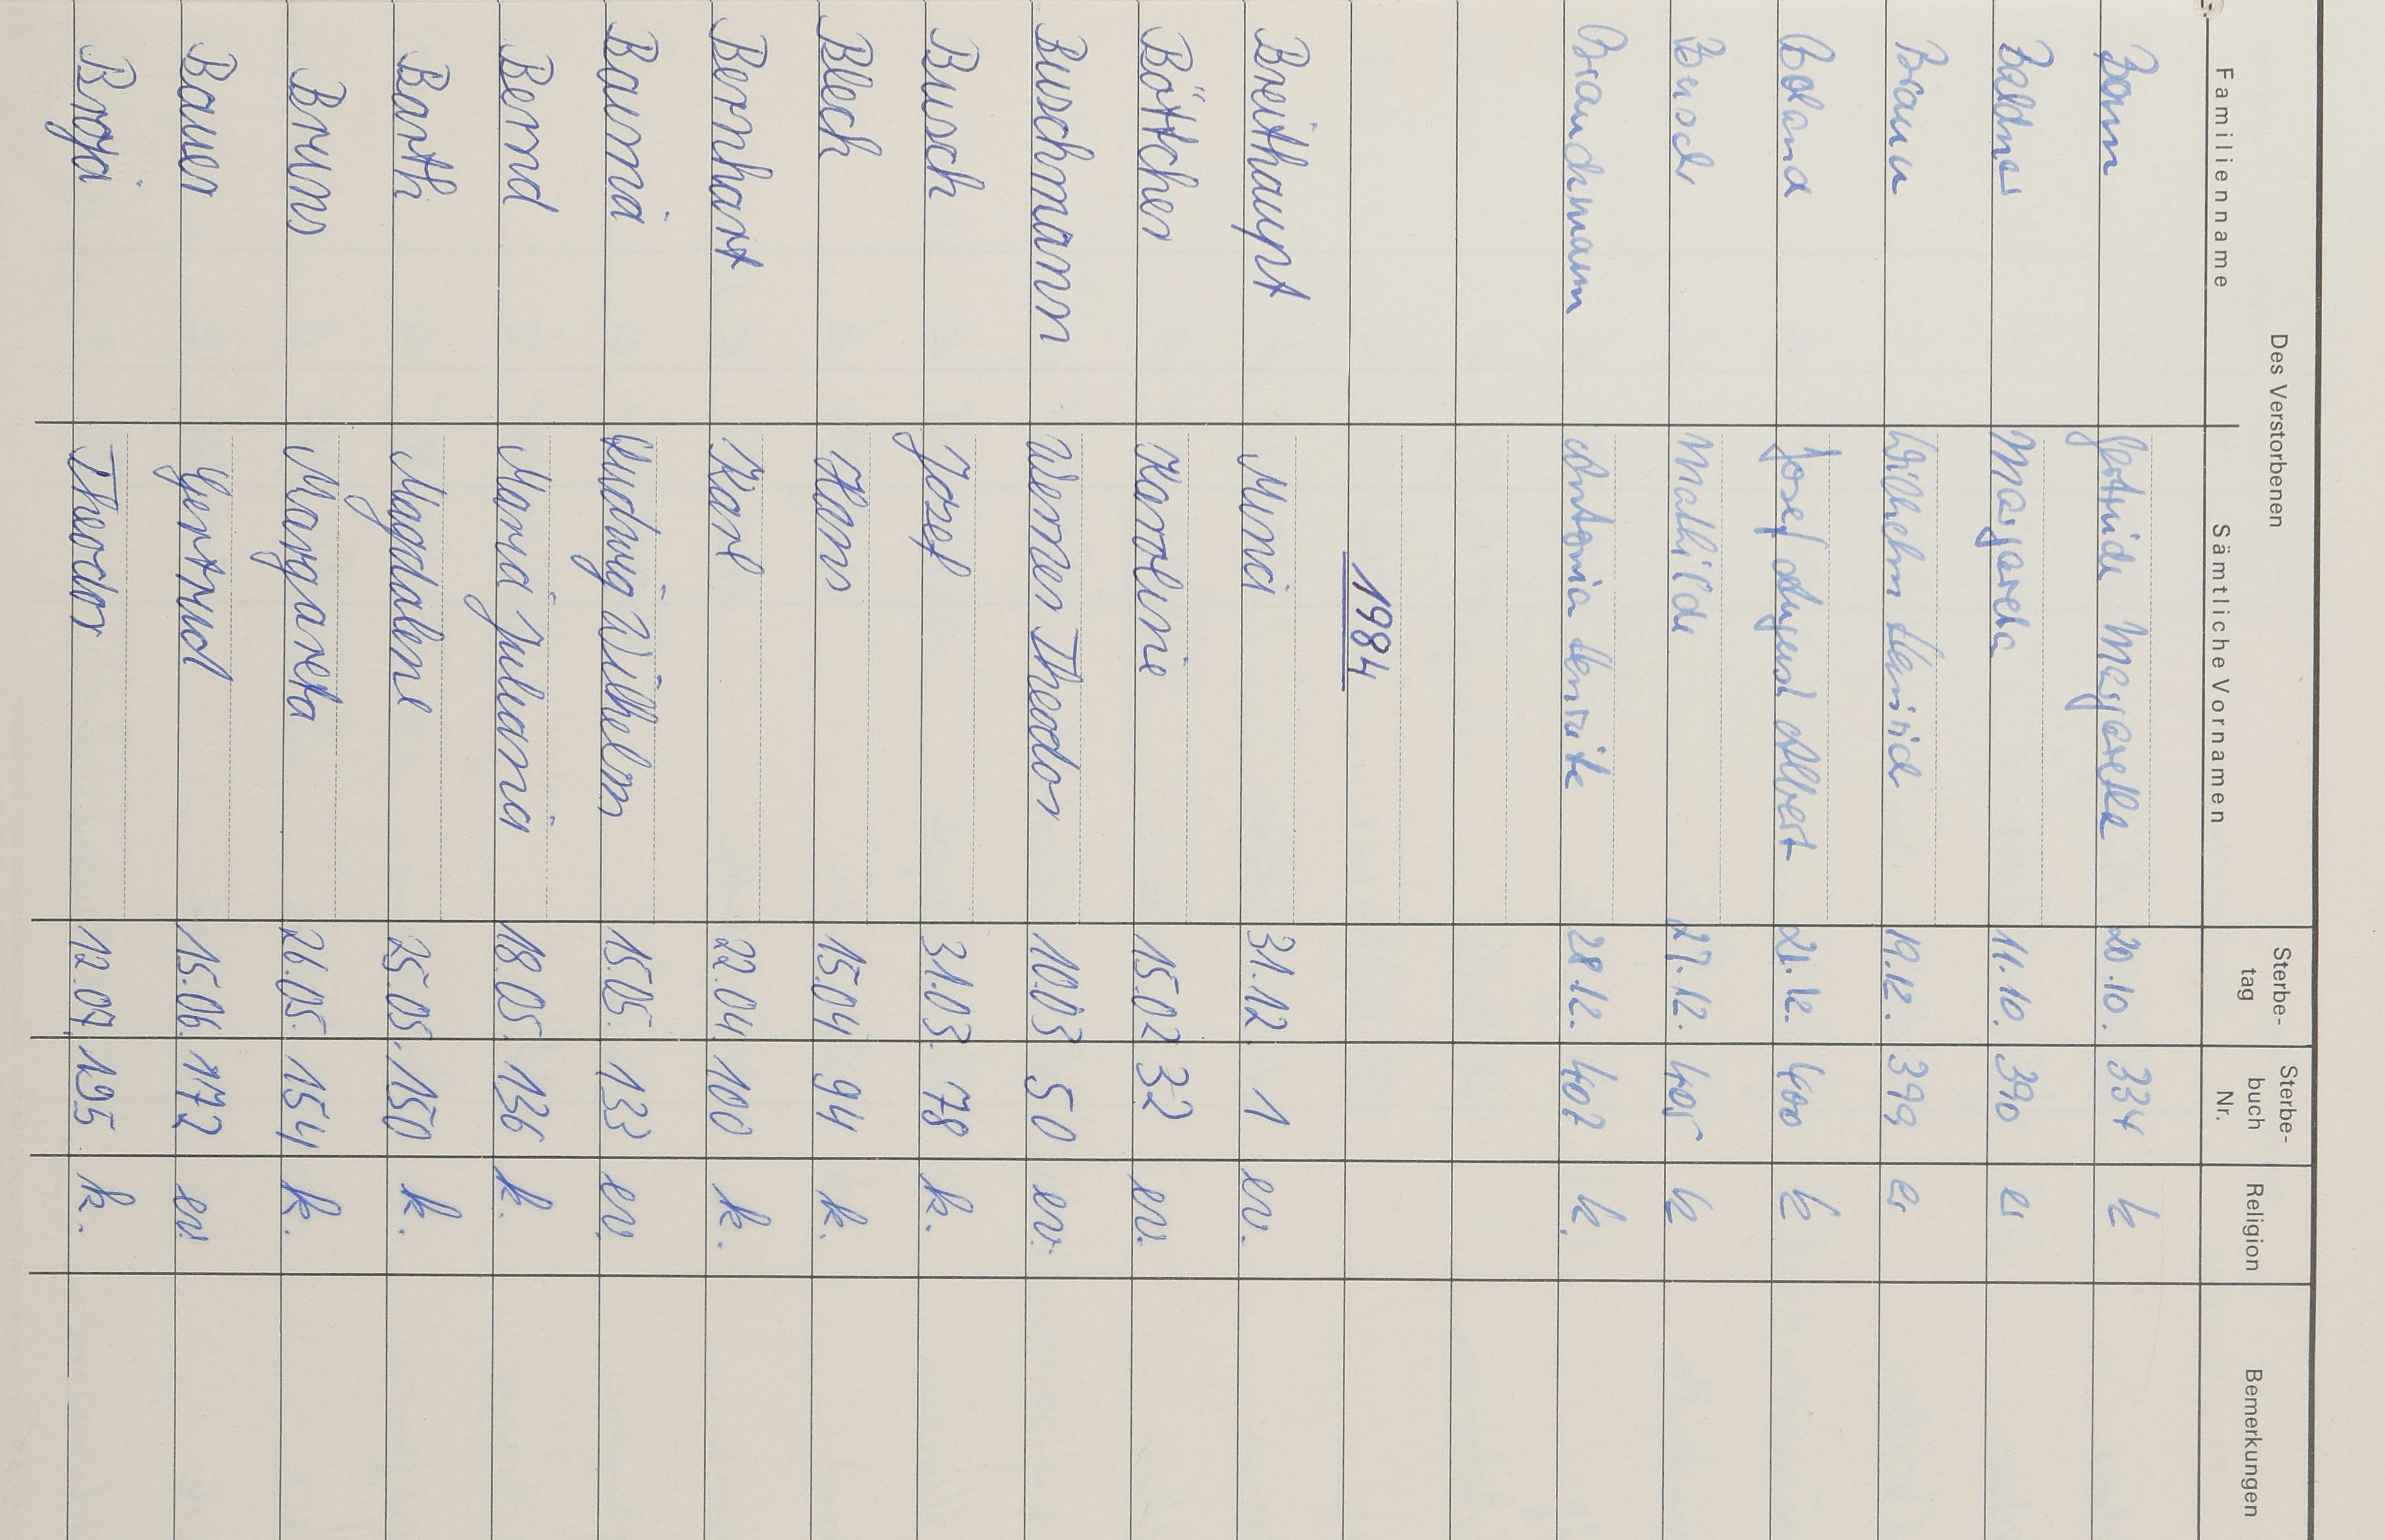 Des Verstorbenen
Familienname Sämtliche Vornamen Sterbe-tag Sterbe-buch Nr. Religion Bemerkungen
Bonn Gertrude Margaretha 20.10. 334 k
Baldner Margareta 11.10. 390 ev
Braun Wilhelm Heinrich 19.12. 399 ev
Boland Josef August Albert 21.12. 400 k
Busch Mathilde 27.12. 405 k
Brauckmann Antonia Henriette 28.12. 407 k.
1984
Breithaupt Mina 31.12. 1 ev.
Böttcher Karoline 15.02 32 ev.
Buschmann Werner Theodor 10.03 50 ev.
Busch Josef 31.03. 78 k.
Blech Hans 15.04 94 k.
Bernhart Karl 22.04. 100 k.
Bauma Ludwig Wilhelm 15.05. 133 ev.
Bernd Maria Juliana 18.05. 136 k.
Barth Magdalene 25.05. 150 k.
Bruns Margareta 26.05. 154 k.
Bauer Gertrud 15.06. 172 ev.
Broja Theodor 12.07. 195 k.